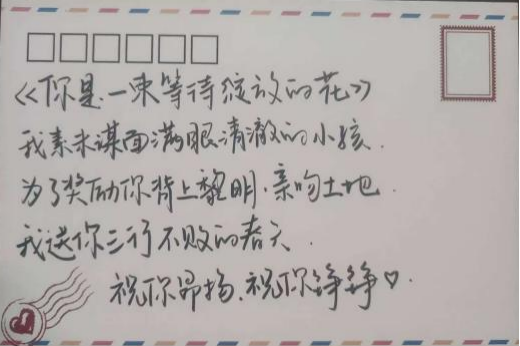 《你是一束等待绽放的花》
我素未谋面满眼清澈的小孩.
为了奖励你背上黎明.亲吻土地.
我送你三行不败的春天.
祝你昂扬.祝你铮铮♡.